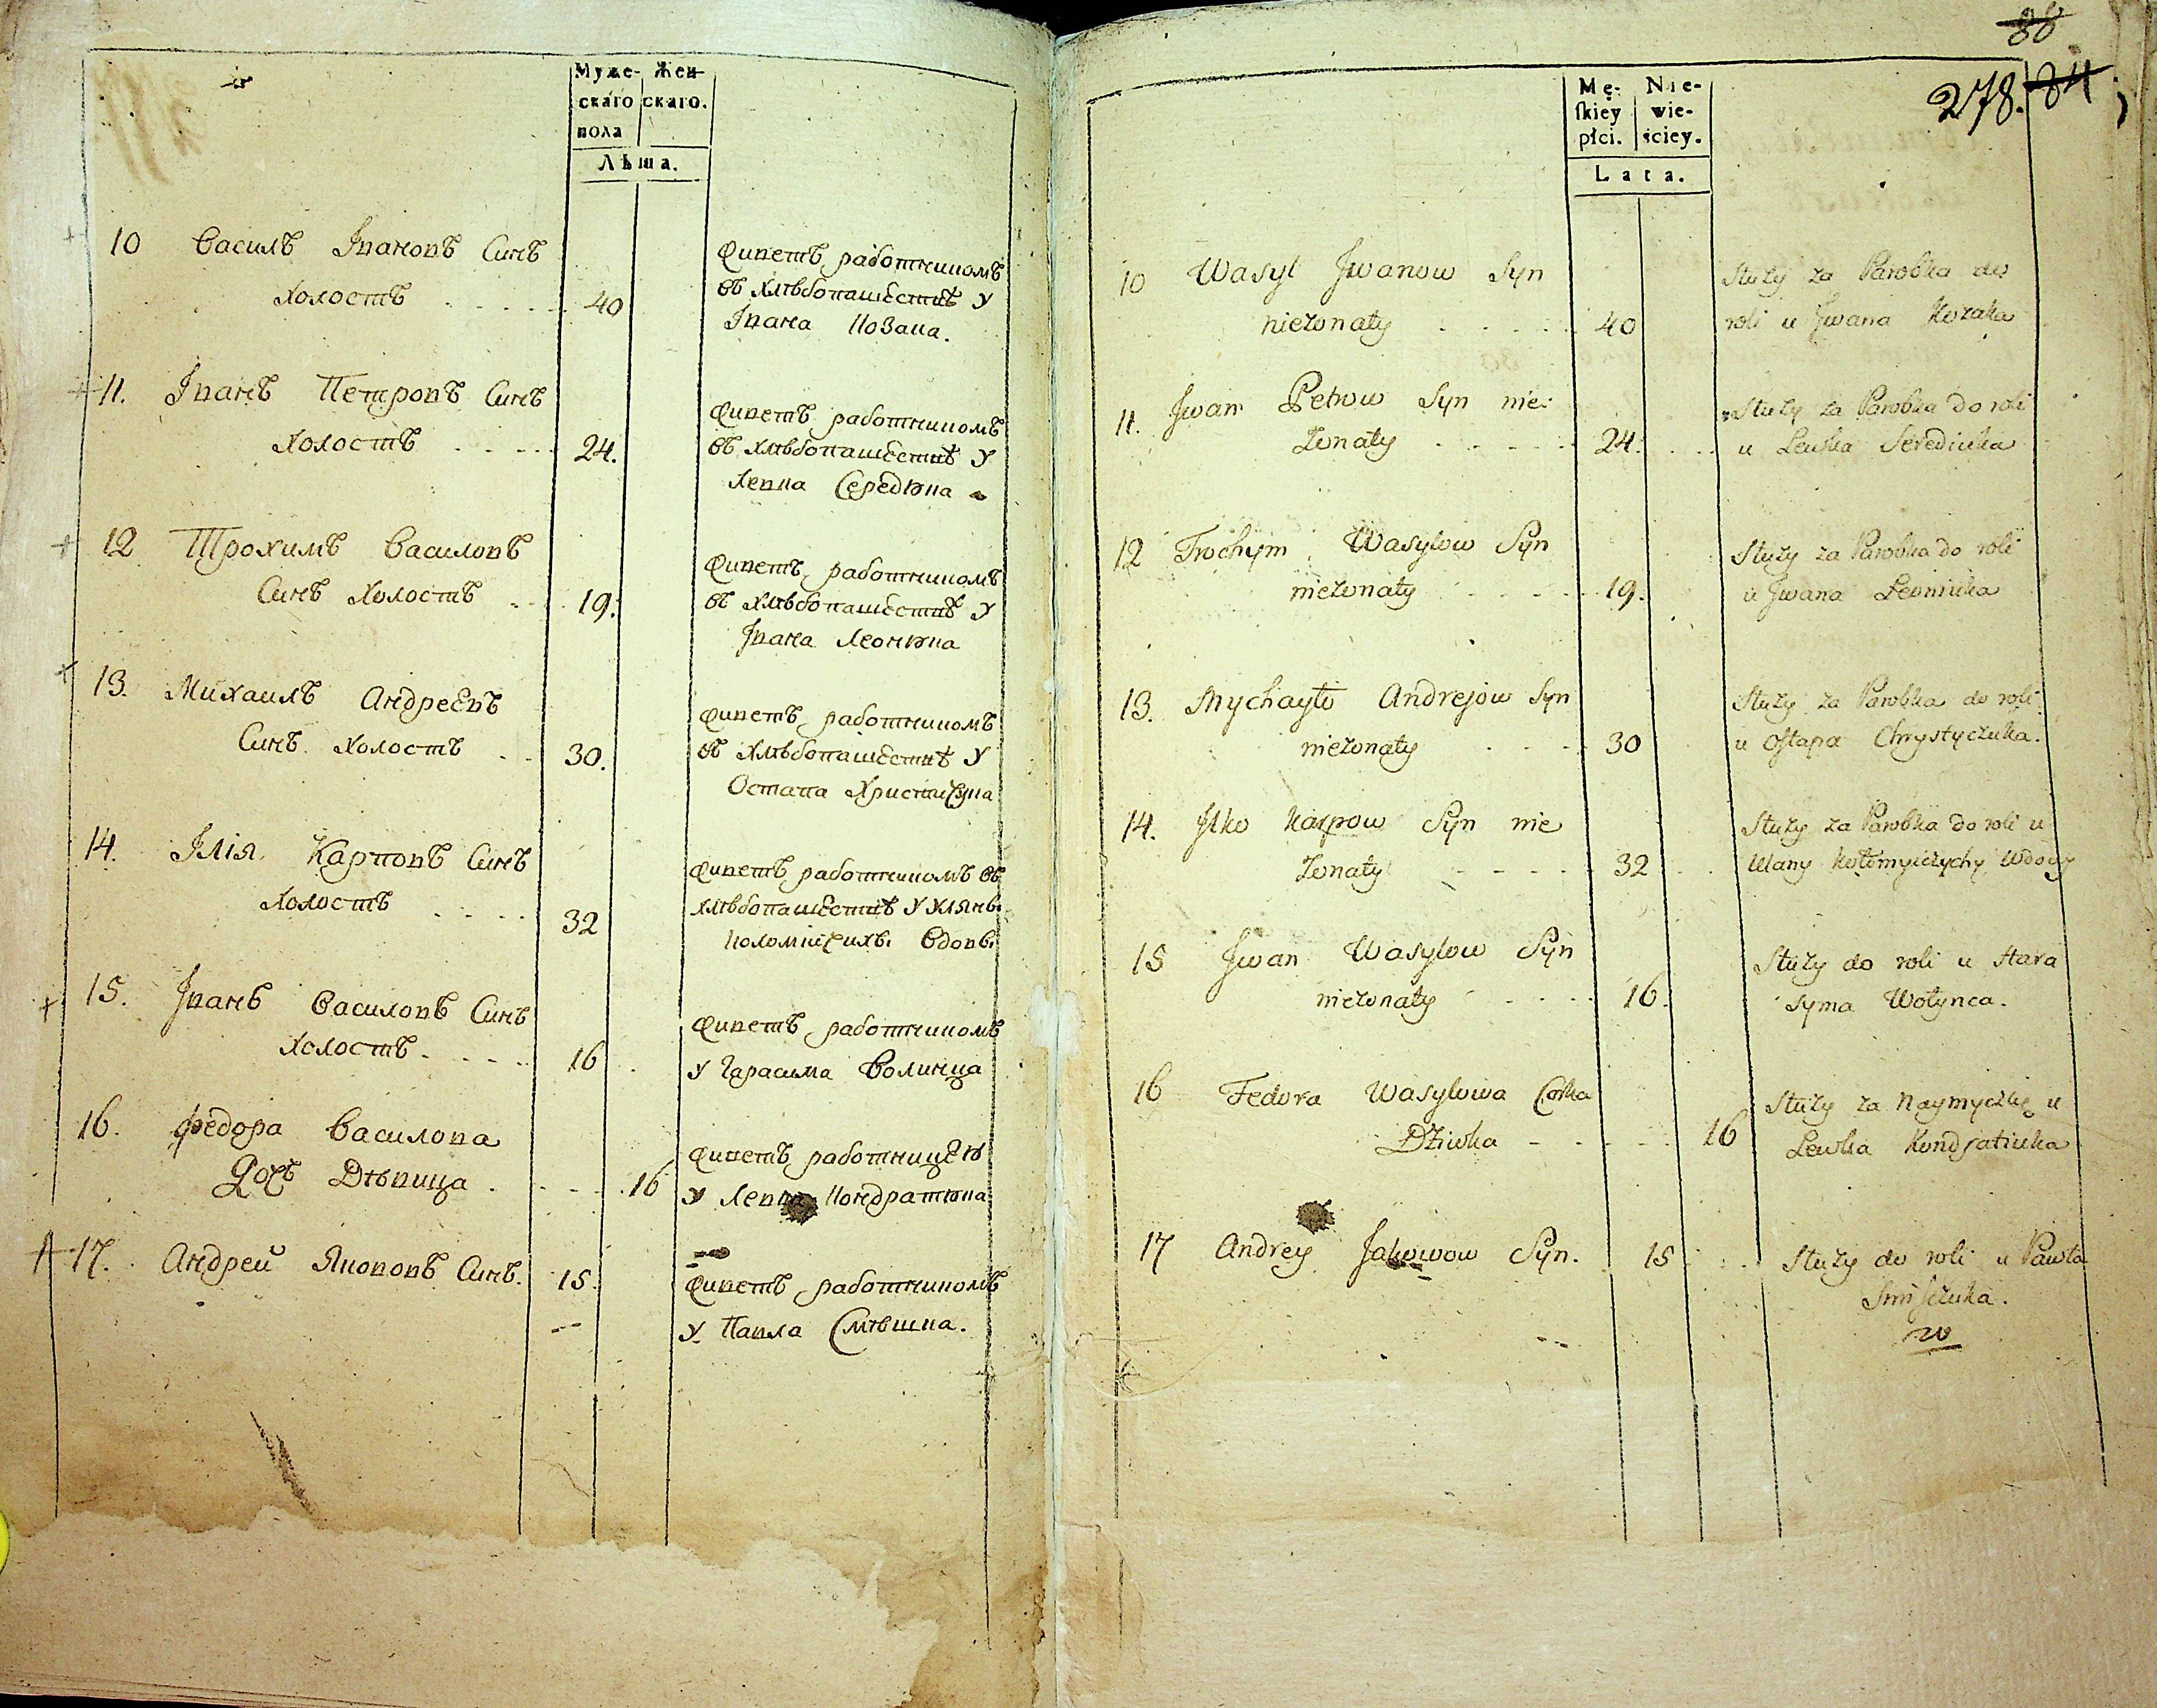 Муже- Жен-
скаго скаго.
пола
Лѣта.
10 Василъ Iвановъ Синъ
холостъ 40
Живетъ работникомъ
въ хлѣбопашествѣ у
Iвана Козака.
11. Iванъ Петровъ Синъ
холостъ 24.
Живетъ работникомъ
въ хлѣбопашествѣ у
Левка Середюка
12 Трохимъ Василовъ
Синъ холостъ 19.
Живетъ работникомъ
въ хлѣбопашествѣ у
Iвана Леонюка
13. Михаилъ Андреевъ
Синъ холостъ 30.
Живетъ работникомъ
въ хлѣбопашествѣ у
Остапа Христичука
14. Iлія Карповъ Синъ
холостъ 32
Живетъ работникомъ въ
хлѣбопашествѣ у Уляни
Коломійчихи Вдови
15. Iванъ Василовъ Синъ
холостъ 16
Живетъ работникомъ
у Гарасима Волинца
16. Федора Василова
Дочъ Дѣвица 16
Живетъ работницею
у Левка Кондратюка
17. Андрей Якововъ Синъ. 15.
Живетъ работникомъ
у Павла Смѣшка.
88
278. 84
Mę- Nie-
ſkiey wie-
płci. ściey.
Lata.
10 Wasyl Jwanow Syn
nieżonaty 40
Służy za Parobka do
roli u Jwana Kozaka
11. Jwan Petrow Syn nie-
żonaty 24.
Służy za Parobka do roli
u Lewka Serediuka
12 Trochym Wasylow Syn
nieżonaty 19.
Służy za Parobka do roli
u Jwana Leoniuka
13. Mychayło Andrejow Syn
nieżonaty 30
Służy za Parobka do roli
u Oſtapa Chrystyczuka.
14. Jlko Karpow Syn nie
żonaty 32
Służy za Parobka do roli u
Ulany Kołomyiczychy Wdowy
15 Jwan Wasylow Syn
nieżonaty 16.
Służy do roli u Hara
syma Wołynca.
16 Fedora Wasylowa Corka
Dziwka 16
Służy za Naymyczkę u
Lewka Kondratiuka
17 Andrey Jakowow Syn. 15
Służy do roli u Pawła